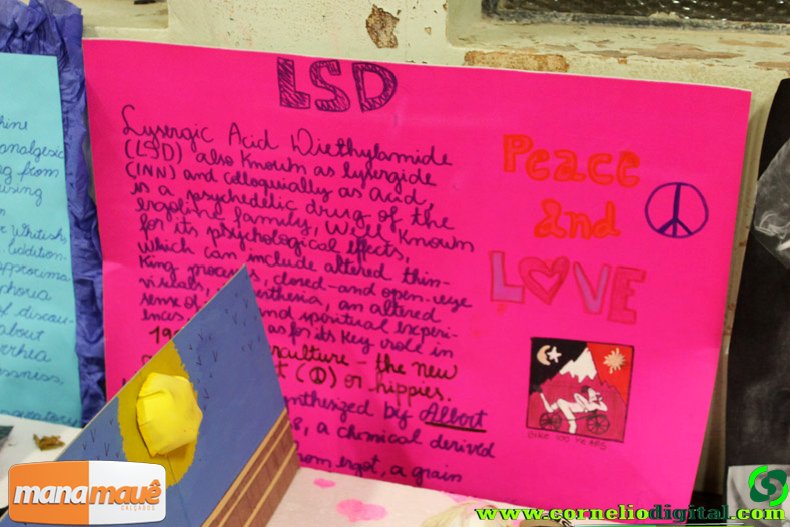 hine
analgesic
ng from
using
n
r Whitish,
Addition
approxima
phoria
of discou
about
rrhea
LSD
Lysergic Acid Diethylamide
(LSD) also known as lysergide
(INN) and colloquially as acid,
is a psychedelic drug of the
ergoline family, Well Known
for its psychological effects,
which can include altered thin-
king process, closed-and open-eye
visuals, synesthesia, an altered
sense of and spiritual experi-
ences, as for its key role in
19 culture - the new
t (☮) or hippies.
nthesized by Albert
8, a chemical derived
from ergot, a grain
Peace
and
LOVE
BIKE 100 YEARS
manamauê
CALÇADOS
www.corneliodigital.com